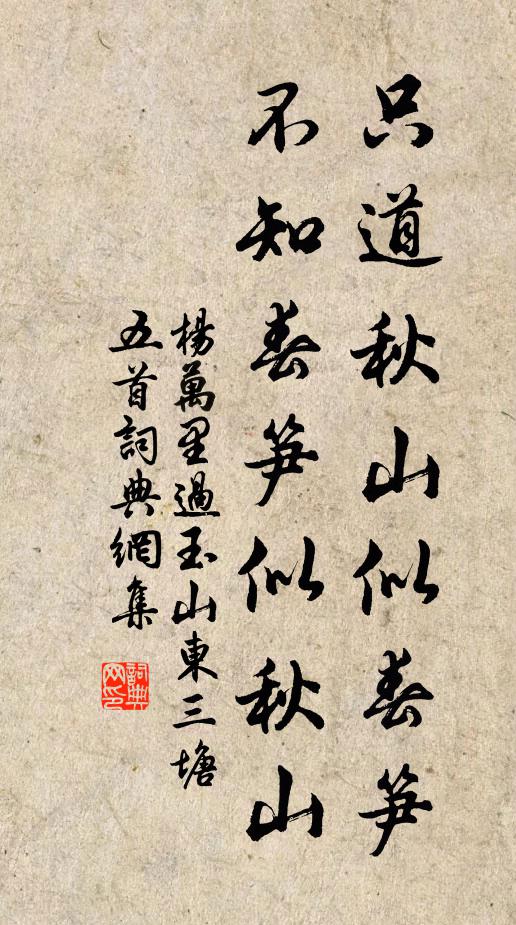 只道秋山似春笋
不知春笋似秋山
楊萬里過玉山東三塘
五首詞典網集
詞典
网印